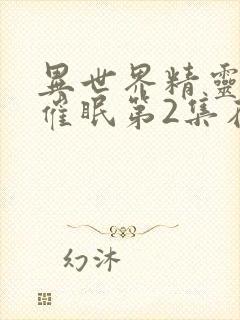 異世界精靈
催眠第2集
幻沐